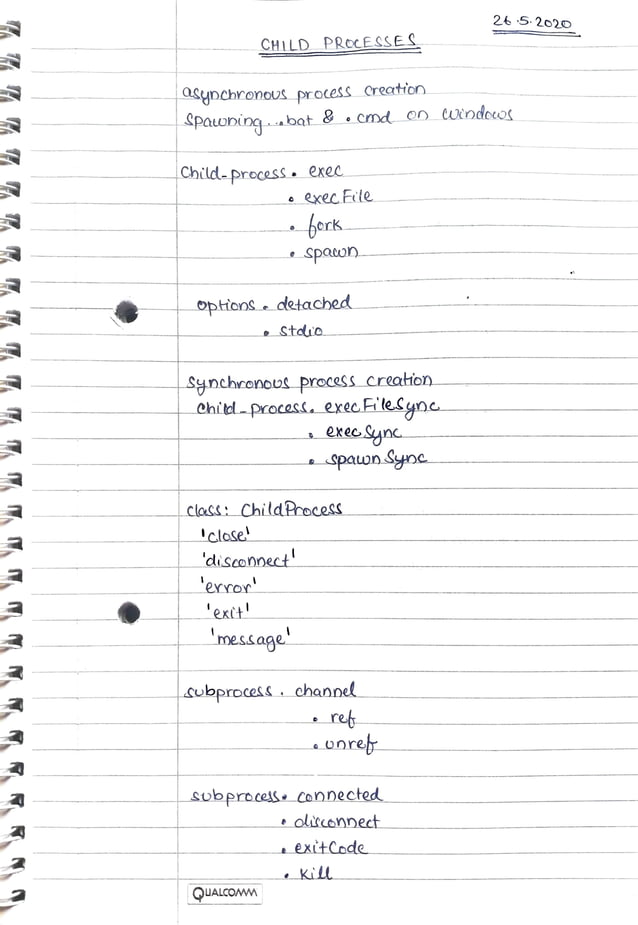 26.5.2020
CHILD PROCESSES
asynchronous process creation
spawning ..bat & .cmd on windows
Child-process. exec
. execFile
. fork
. spawn
options. detached
. stdio
synchronous process creation
child-process. execFileSync
. execSync
. spawnSync
class: ChildProcess
'close'
'disconnect'
'error'
'exit'
'message'
subprocess. channel
. ref
. unref
subprocess. connected
. disconnect
. exitCode
. kill
QUALCOMM